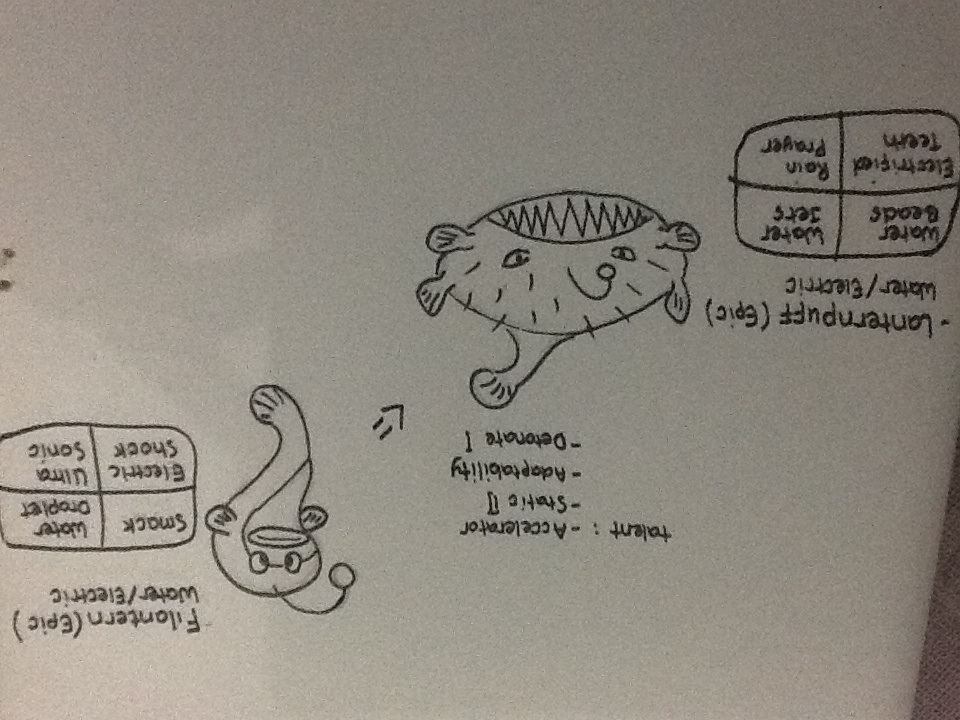 -Filantern (Epic)
Water/Electric
Smack
Water
Droplet
Electric
Shock
Ultra
Sonic
talent : -Accelerator
-Static II
-Adaptability
-Detonate I
-Lanternpuff (Epic)
Water/Electric
Water
Beads
Water
Jets
Electrified
Teeth
Rain
Prayer